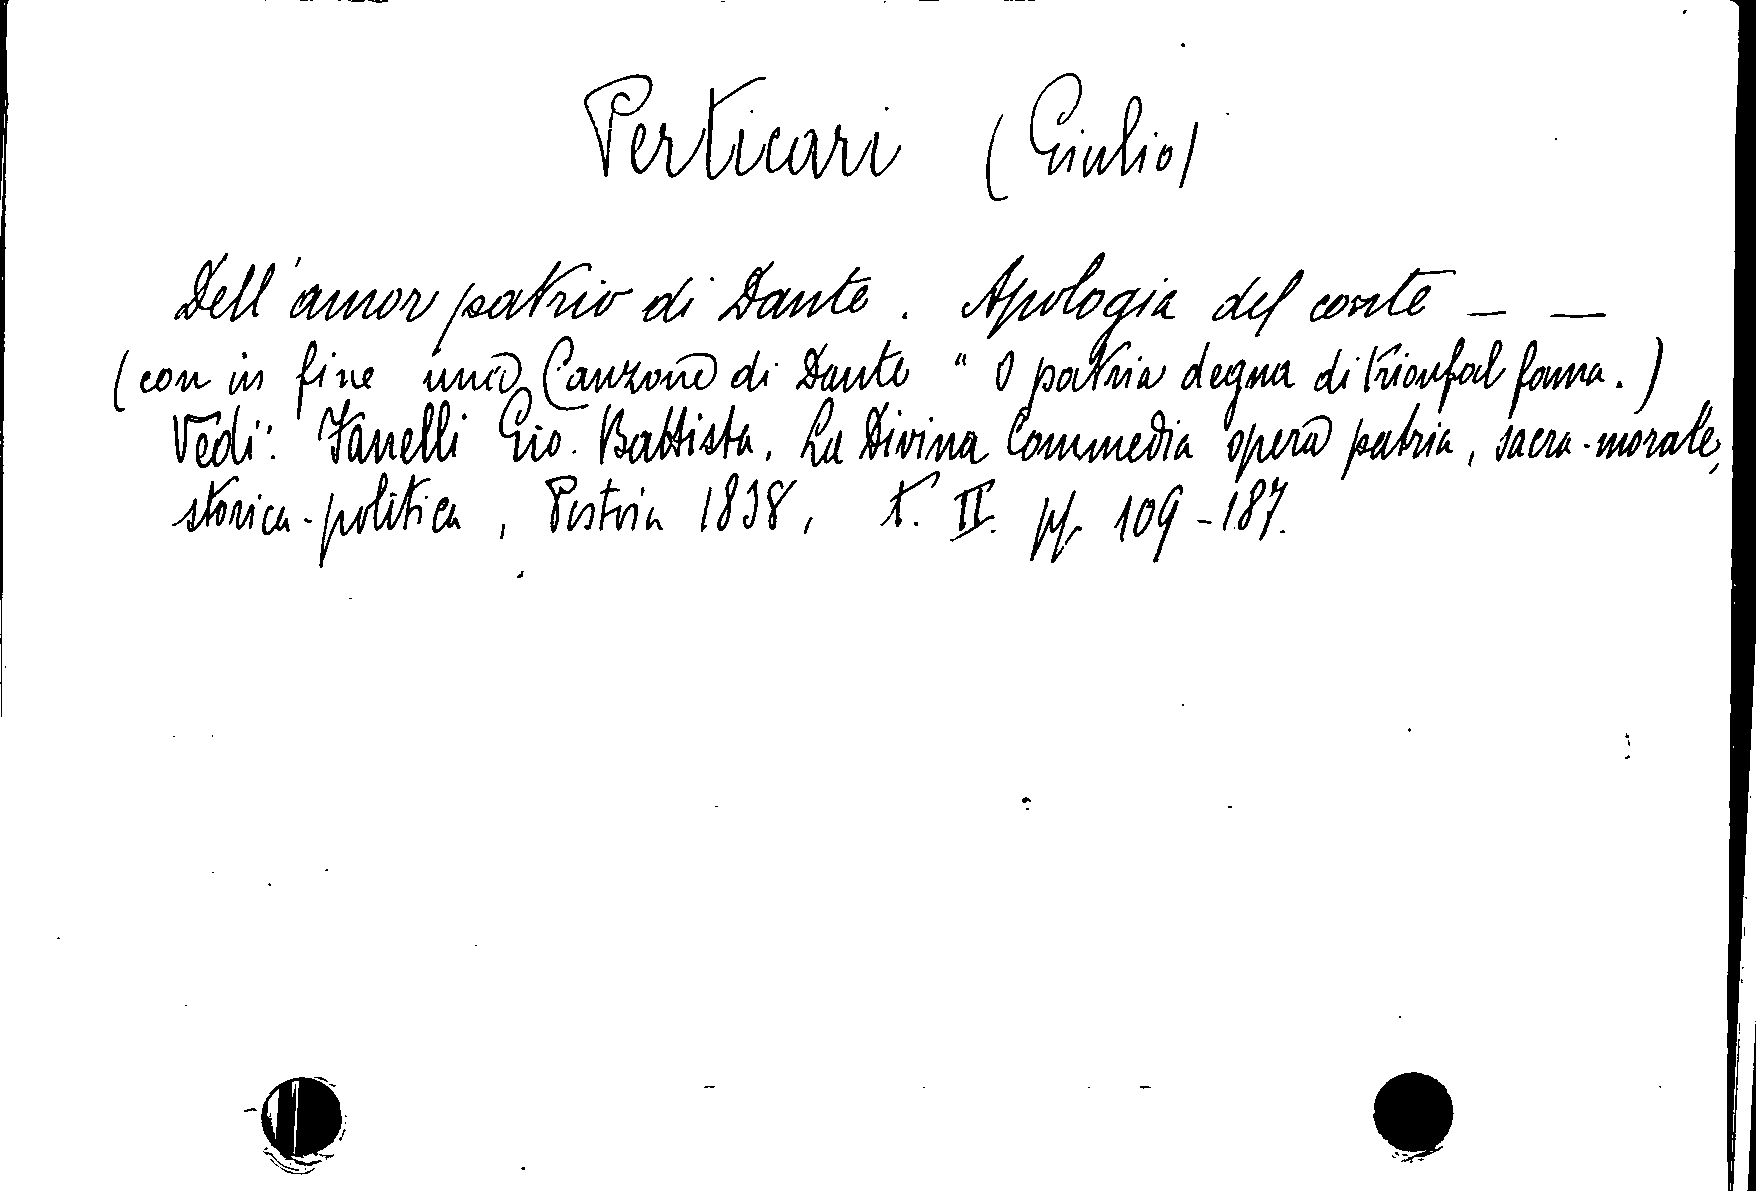 Perticari (Giulio)
Dell'amor patrio di Dante. Apologia del conte — —
(con in fine una Canzone di Dante " O patria degna di trionfal fama.)
Vedi: Fanelli Gio. Battista. La Divina Commedia opera patria, sacra-morale,
storica-politica, Pistoia 1838, t. II. pp. 109-187.